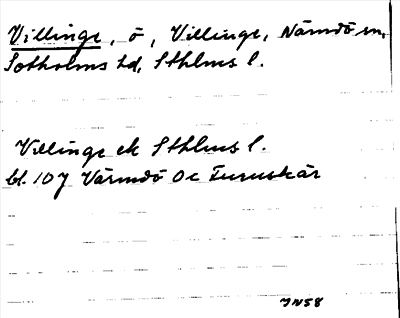 Villinge, ö, Villinge, Nämdö sn,
Sotholms hd, Sthlms l.
Villinge ek Sthlms l.
bl. 107 Värmdö o Furuskär
JN58